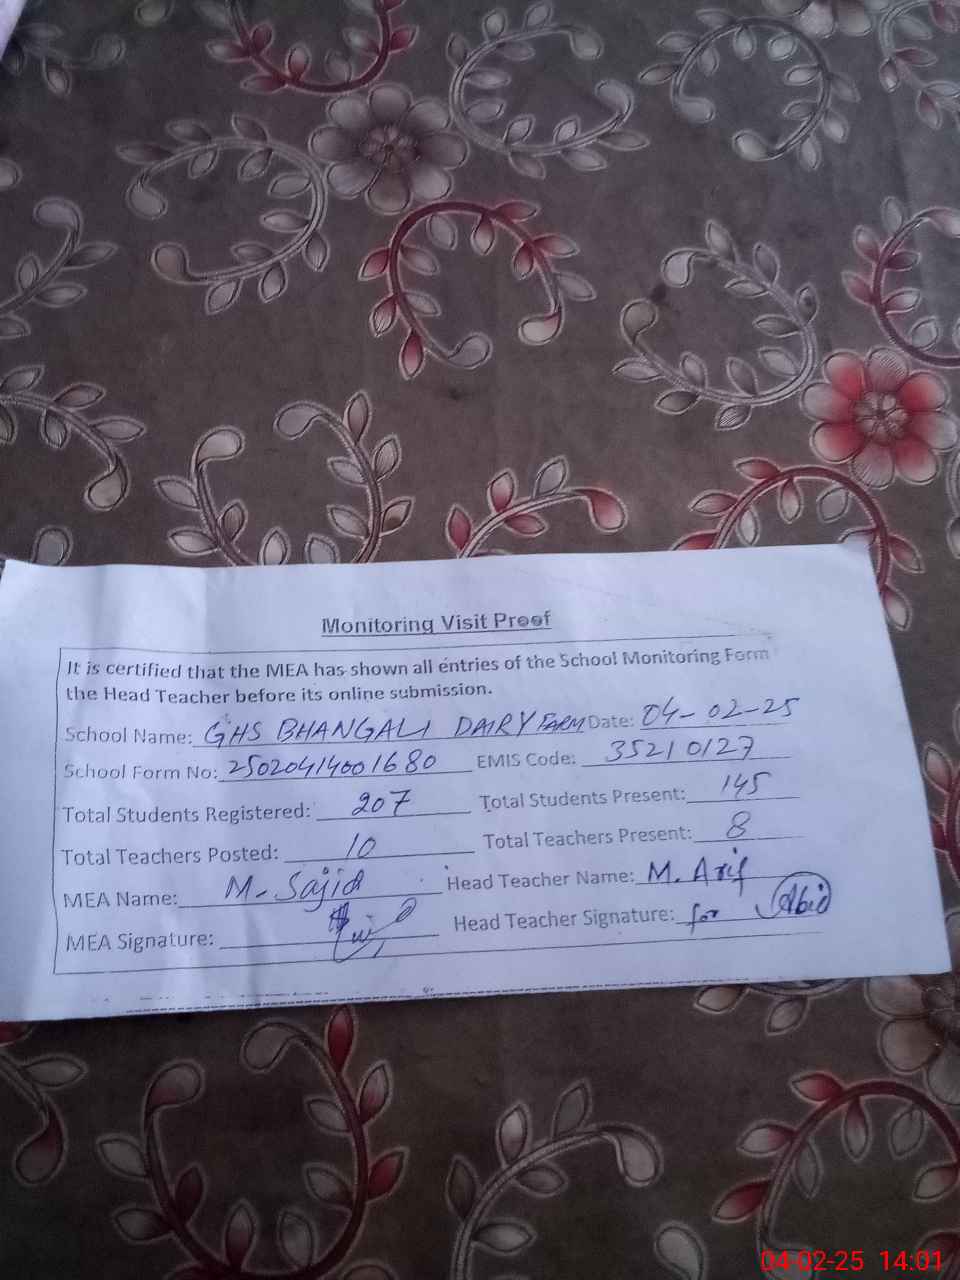 Monitoring Visit Proof
It is certified that the MEA has shown all entries of the School Monitoring Form
the Head Teacher before its online submission.
School Name: GHS BHANGALI DAIRY FARM Date: 04-02-25
School Form No: 25020414001680 EMIS Code: 35210127
Total Students Registered: 207 Total Students Present: 145
Total Teachers Posted: 10 Total Teachers Present: 8
MEA Name: M. Sajid Head Teacher Name: M. Arif
MEA Signature: Head Teacher Signature: for Abid
04-02-25 14:01